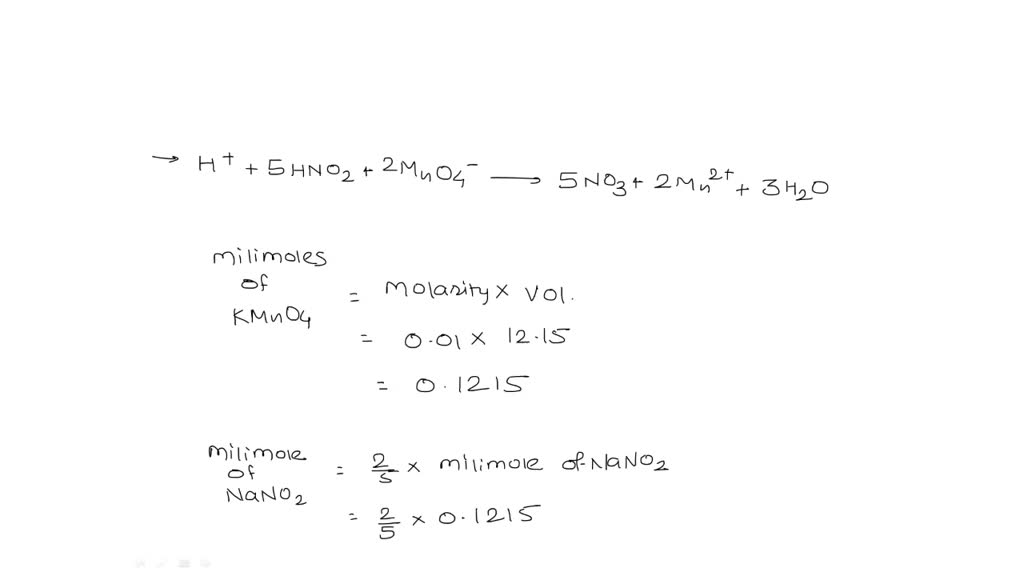 → H⁺ + 5HNO₂ + 2MnO₄⁻ ⟶ 5NO₃ + 2Mn²⁺ + 3H₂O
milimoles
of
KMnO₄
= Molarity × Vol.
= 0.01 × 12.15
= 0.1215
milimole
of
NaNO₂
= 2/5 × milimole of NaNO₂
= 2/5 × 0.1215